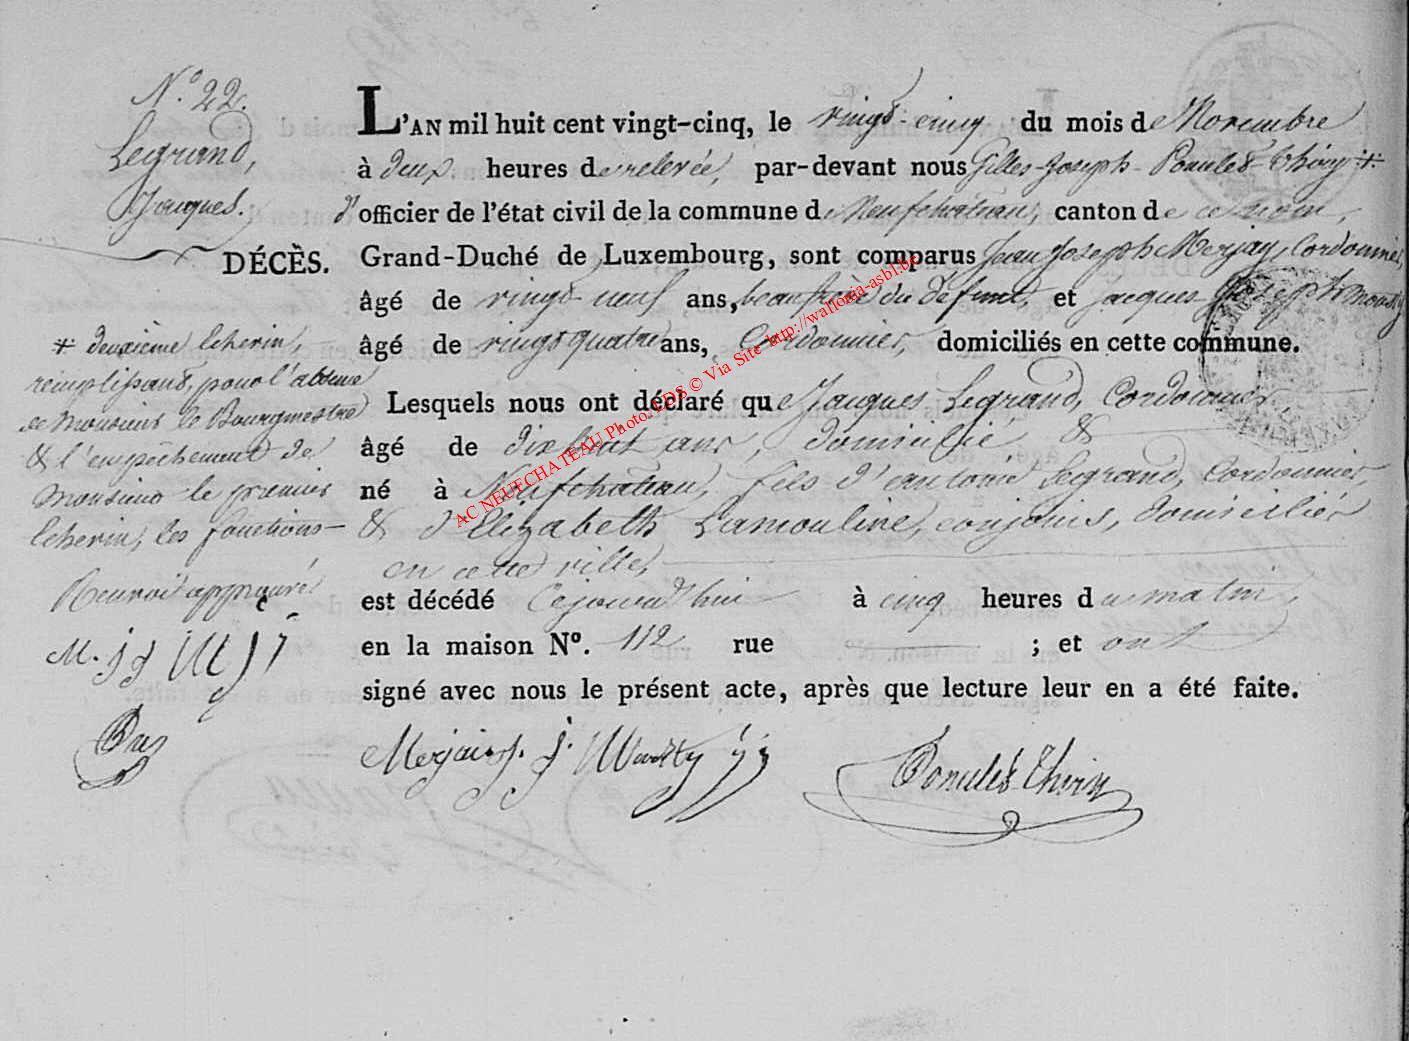 N.° 22.
Legrand,
Jacques.
DÉCÈS.
* deuxième Echevin,
remplissant, pour l'absence
de Monsieur le Bourgmestre
& l'empêchement de
Monsieur le premier
Echevin, les fonctions
Renvoi approuvé
L'AN mil huit cent vingt-cinq, le vingt-cinq du mois de Novembre
à deux heures de relevée, par-devant nous Gilles-Joseph Poncelet-Thiry *
d'officier de l'état civil de la commune de Neufchateau, canton de ce nom,
Grand-Duché de Luxembourg, sont comparus Jean Joseph Merjay, Cordonnier,
âgé de vingt-neuf ans, beaufrère du défunt, et Jacques Joseph
âgé de vingt quatre ans, Cordonnier, domiciliés en cette commune.
Lesquels nous ont déclaré que Jacques Legrand, Cordonnier
âgé de dix huit ans, domicilié &
né à Neufchateau, fils d'antoine Legrand, Cordonnier,
& d'Elizabeth Lamouline, conjoints, domiciliés
en cette ville,
est décédé Cejourd'hui à cinq heures du matin,
en la maison N°. 112 rue ; et ont
signé avec nous le présent acte, après que lecture leur en a été faite.
Poncelet-Thiry
AC NEUFCHATEAU Photo. EDS © Via Site http://wallonia-asbl.be